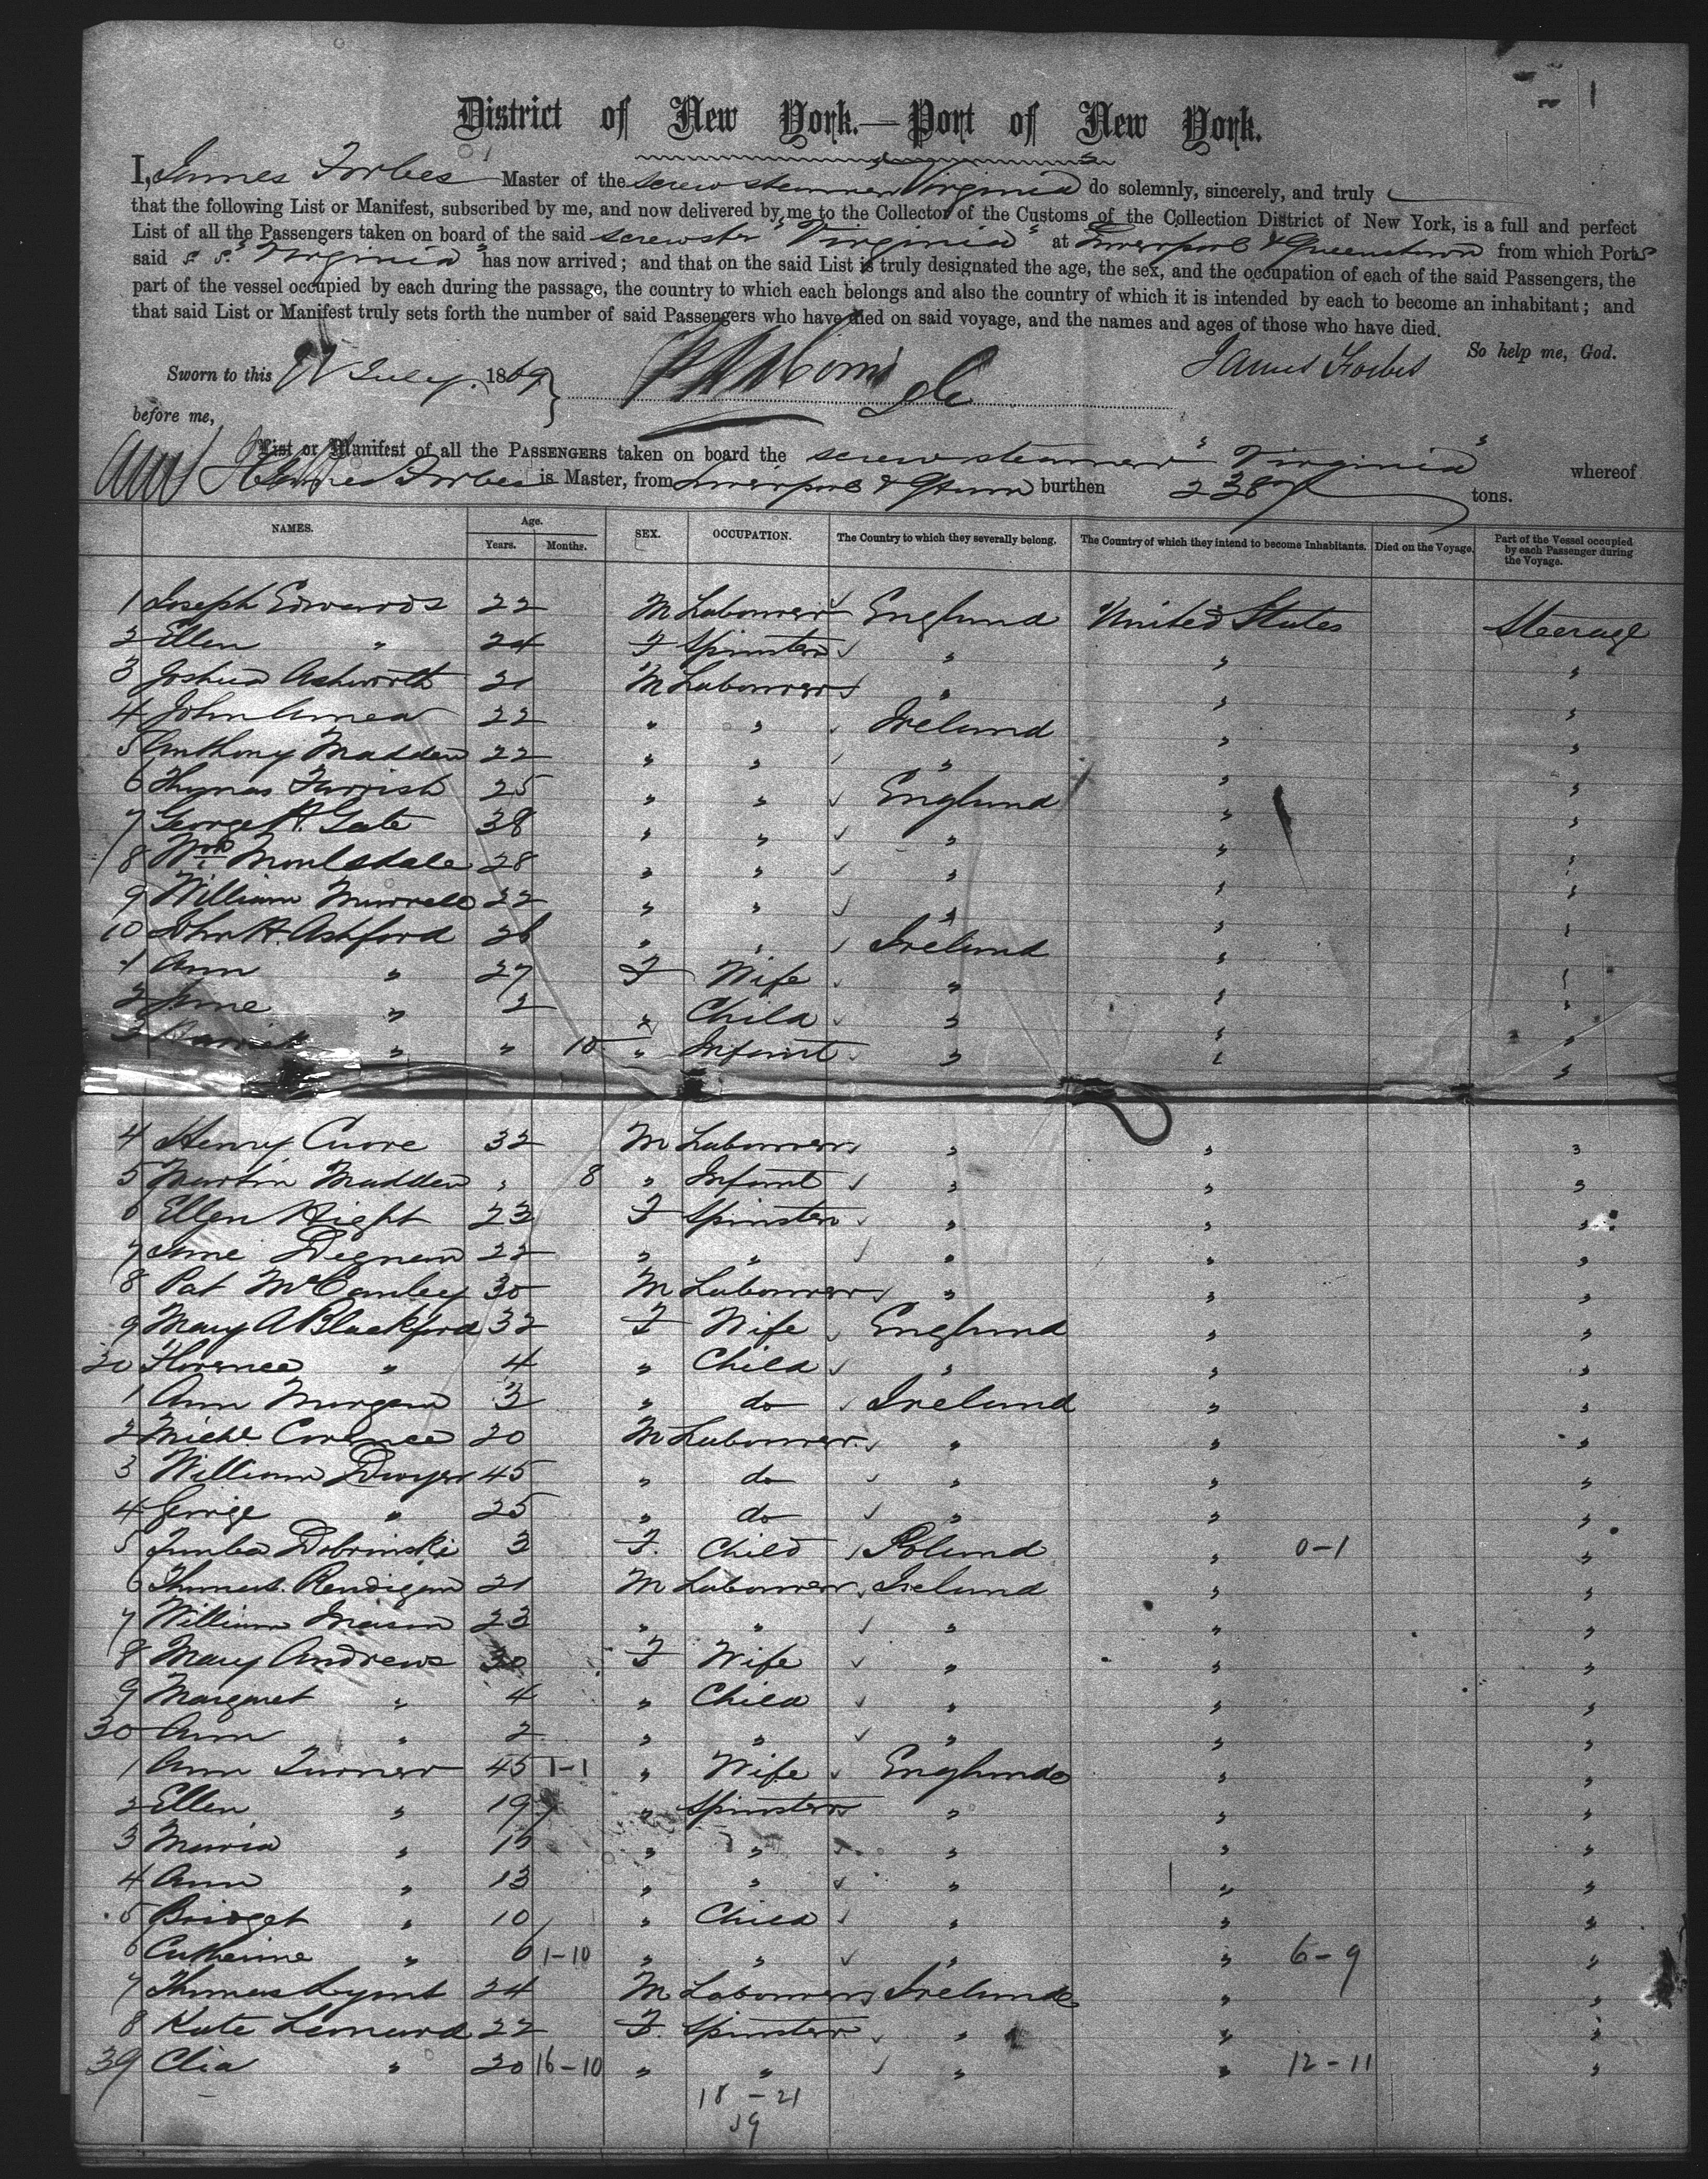 District of New York.—Port of New York.
I, James Forbes Master of the screw steamer "Virginia" do solemnly, sincerely, and truly
that the following List or Manifest, subscribed by me, and now delivered by me to the Collector of the Customs of the Collection District of New York, is a full and perfect
List of all the Passengers taken on board of the said screw str "Virginia" at Liverpool & Queenstown from which Ports
said s. s. "Virginia" has now arrived; and that on the said List is truly designated the age, the sex, and the occupation of each of the said Passengers, the
part of the vessel occupied by each during the passage, the country to which each belongs and also the country of which it is intended by each to become an inhabitant; and
that said List or Manifest truly sets forth the number of said Passengers who have died on said voyage, and the names and ages of those who have died.
So help me, God.
Sworn to this July 1869 James Forbes
before me,
List or Manifest of all the PASSENGERS taken on board the screw steamer "Virginia" whereof
James Forbes is Master, from Liverpool & Qtown burthen tons.
NAMES. Age. Years. Months. SEX. OCCUPATION. The Country to which they severally belong. The Country of which they intend to become Inhabitants. Died on the Voyage. Part of the Vessel occupied by each Passenger during the Voyage.
1 Joseph Edwards 22 M Labourer England United States Steerage
2 Ellen " 24 F Spinster " " "
3 Joshua Ashworth 21 M Labourer " " "
4 John 22 " " Ireland " "
5 Anthony Madden 22 " " " " "
6 Thomas Farrish 25 " " England " "
7 George H. Gate 38 " " " " "
8 Wm Moulsdale 28 " " " " "
9 William Murrell 22 " " " " "
10 John H. Ashford 26 " " Ireland " "
1 Ann " 27 F Wife " " "
2 Jane " 2 " Child " " "
3 " " 10 " Infant " " "
4 Henry 32 M Labourer " " "
5 Martin Madden " 8 " Infant " " "
6 Ellen Hight 23 F Spinster " " "
7 Jane Degnan 22 " " " " "
8 Pat McCauley 30 M Labourer " " "
9 Mary A Blackford 32 F Wife England " "
20 Florence " 4 " Child " " "
1 Ann Morgan 3 " do Ireland " "
2 Michl 20 M Labourer " " "
3 William Dwyer 45 " do " " "
4 George " 25 " do " " "
5 Dobrinski 3 F. Child Poland " 0-1 "
6 Thomas Rendigan 21 M Labourer Ireland " "
7 William Mason 23 " " " " "
8 Mary Andrews 30 F Wife " " "
9 Margaret " 4 " Child " " "
30 Ann " 2 " " " " "
1 Ann Turner 45 1-1 " Wife England " "
2 Ellen " 19 " Spinster " " "
3 Maria " " " " " "
4 Ann " 13 " " " " "
5 Bridget " 10 " Child " " "
6 Catherine " 6 1-10 " " " " 6-9 "
7 Thomas 24 M Labourer Ireland " "
8 Kate Leonard 22 F. Spinster " " "
39 Clia " 20 16-10 " " " " 12-11 "
18 - 21
39